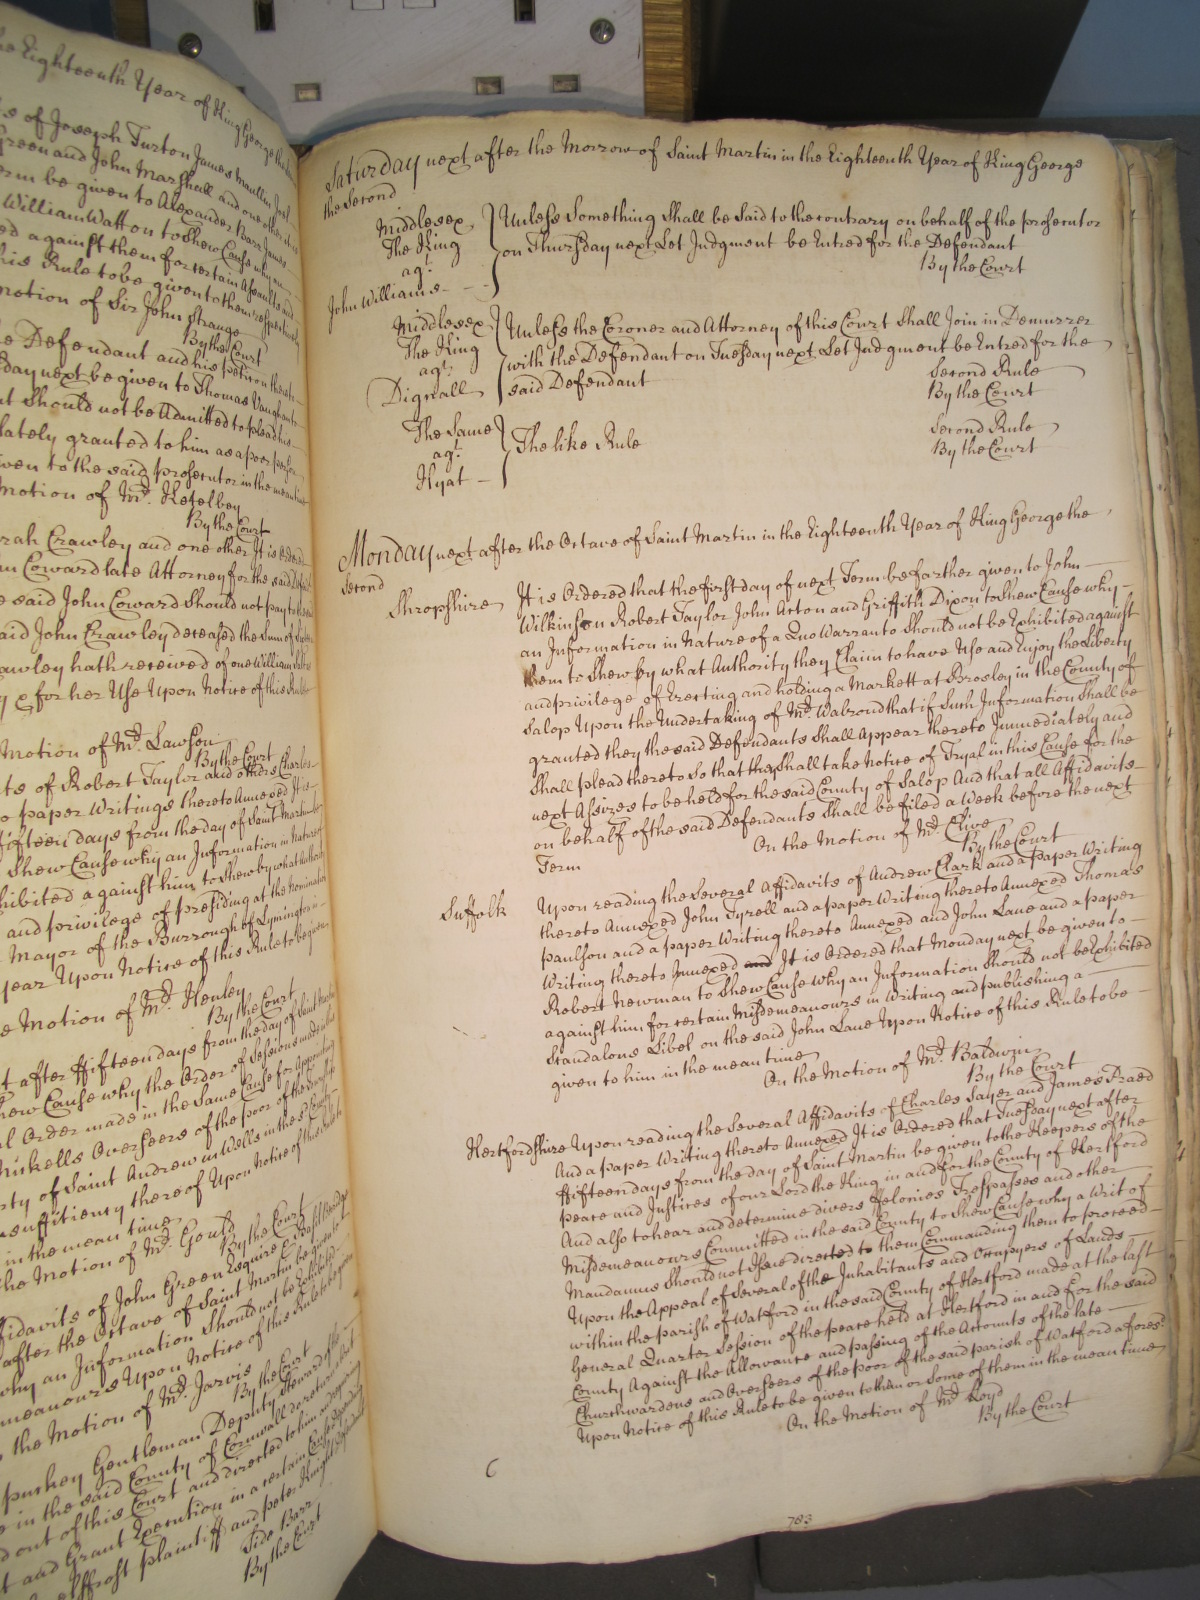 the Eighteenth Year of King George the
ts of Joseph Turton James
Green and John Marshall and one other
erm be given to Alexander Barr James
William Watton to Shew Cause why an
ed against them for certain Assaults and
his Rule to be given to them respectively
motion of Sir John Strange
By the Court
e Defendant and his petition thereto
day next be given to Thomas Vaughan
nt Should not be Admitted to plead
lately granted to him as a poor person
iven to the said prosecutor in the meantime
Motion of Mr. Ketelbey
By the Court
rah Crawley and one other It is Ordered
n Coward late Attorney for the said
e said John Coward Should not pay to
aid John Crawley deceased the Sum of
awley hath received of one William
y x for her Use Upon Notice of this Rule
Motion of Mr. Lawson
By the Court
ts of Robert Taylor and others Charles
o paper Writings thereto Annexed It is
fifteen days from the day of Saint Martin
Shew Cause why an Information in Nature of
hibited against him to Shew by what Authority
and privilege of presiding at the Nomination
Mayor of the Burrough of Lymington in
year Upon Notice of this Rule to be given
e Motion of Mr. Henley
By the Court
t after ffifteen days from the day of Saint Martin
hew Cause why the Order of Sessions made in
al Order made in the Same Cause for Appointing
Muskells Overseers of the poor of the
rty of Saint Andrew in Wells in the County
nsufficiency thereof Upon Notice of this Rule
in the mean time
the Motion of Mr. Gould
By the Court
ffidavits of John Green Esquire
after the Octave of Saint Martin be given to
why an Information Should not be Exhibited
meanours Upon Notice of this Rule to be given
the Motion of Mr. Jarvis
By the Court
puskey Gentleman Deputy Steward of the
in the said County of Cornwall do return
d out of this Court and directed to him
t and Grant Execution in a certain Cause
ffrost plaintiff and peter Knight Defendant
Side Barr
By the Court
Saturday next after the Morrow of Saint Martin in the Eighteenth Year of King George
the Second
Middlesex Unless Something Shall be Said to the contrary on behalf of the prosecutor
The King on Thursday next Let Judgment be Entred for the Defendant
agt. By the Court
John Williams
Middlesex Unless the Coroner and Attorney of this Court Shall Join in Demurrer
The King with the Defendant on Tuesday next Let Judgment be Entred for the
agt. said Defendant Second Rule
Dignall By the Court
The Same Second Rule
agt. The like Rule By the Court
Hyat
Monday next after the Octave of Saint Martin in the Eighteenth Year of King George the
Second
Shropshire It is Ordered that the first day of next Term be farther given to John
Wilkinson Robert Taylor John Acton and Griffith Dixon to Shew Cause why
an Information in Nature of a Quo Warranto Should not be Exhibited against
them to Shew by what Authority they Claim to have Use and Enjoy the Liberty
and privilege of Erecting and holding a Markett at Brosley in the County of
Salop Upon the Undertaking of Mr. Walrond that if Such Information Shall be
granted they the said Defendants Shall Appear thereto Immediately and
Shall plead thereto So that they Shall take Notice of Tryal in this Cause for the
next Assizes to be held for the said County of Salop And that all Affidavits
on behalf of the said Defendants Shall be filed a Week before the next
Term On the Motion of Mr. Clive
By the Court
Suffolk Upon reading the Several Affidavits of Andrew Clark and a paper Writing
thereto Annexed John Tyrell and a paper Writing thereto Annexed Thomas
paulson and a paper Writing thereto Annexed and John Lane and a paper
Writing thereto Annexed and It is Ordered that Monday next be given to
Robert Newman to Shew Cause why an Information Should not be Exhibited
against him for certain Misdemeanours in Writing and publishing a
Scandalous Libel on the said John Lane Upon Notice of this Rule to be
given to him in the mean time
On the Motion of Mr. Baldwin
By the Court
Hertfordshire Upon reading the Several Affidavits of Charles Sayer and James Praed
And a paper Writing thereto Annexed It is Ordered that Tuesday next after
ffifteen days from the day of Saint Martin be given to the Keepers of the
peace and Justices of our Lord the King in and for the County of Hertford
And also to hear and determine divers ffelonies Trespasses and other
Misdemeanours Committed in the said County to Shew Cause why a Writ of
Mandamus Should not Issue directed to them Commanding them to proceed
Upon the Appeal of Several of the Inhabitants and Occupyers of Lands
within the parish of Watford in the said County of Hertford made at the last
General Quarter Session of the peace held at Hertford in and for the said
County Against the Allowance and passing of the Accounts of the late
Churchwardens and Overseers of the poor of the said parish of Watford aforesd.
Upon Notice of this Rule to be given to them or Some of them in the mean time
On the Motion of Mr. Loyd
By the Court
6
783